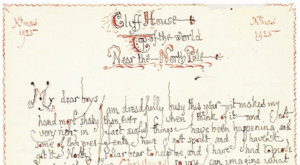 Xmas
1925
Cliff House
Top of the world
Near the North Pole
Xmas
1925
My dear boys
I am dreadfully busy this year — it makes my
hand more shaky than ever when I think of it — and not
very rich in fact awful things have been happening, and
some of the presents have got spoilt and I haven't
got the North Polar bear to help me and I have had to
you can imagine what